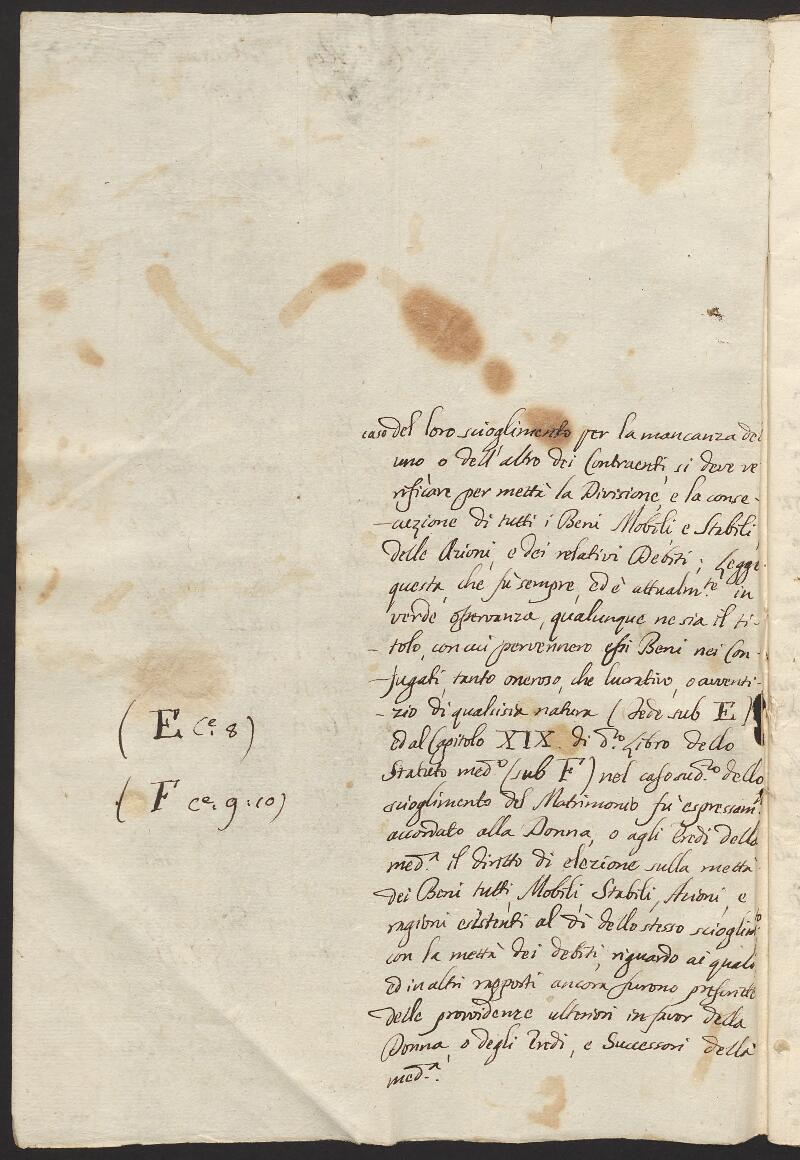 caso del loro scioglimento per la mancanza del
uno o dell'altro dei Contraenti, si deve ve
rificare per mettà la Divisione, e la conse-
-cuzione di tutti i Beni Mobili e Stabili,
delle Azioni, e dei relativi Debiti; Legge
questa, che fù sempre, ed è attualm.te in
verde osservanza, qualunque ne sia il ti-
-tolo, con cui pervennero essi Beni nei Con-
-jugati, tanto oneroso, che lucrativo, o avventi-
-zio di qualsisia natura (Fede sub E)
Ed al Capitolo XIX. di d.to Libro dello
Statuto med.o (sub F) nel caso sud.to dello
scioglimento del Matrimonio fù espressam.
accordato alla Donna, o agli Eredi della
med.a il diritto di elezione sulla mettà
dei Beni tutti, Mobili, Stabili, Azioni, e
ragioni esistenti al dì dello stesso scioglim.to
con la mettà dei debiti, riguardo ai quali
Ed in altri rapporti ancora furono prescritte
delle providenze ulteriori in favor della
Donna, o degli Eredi, e Successori della
med.a
(E C.e 8)
(F C.e 9:10)